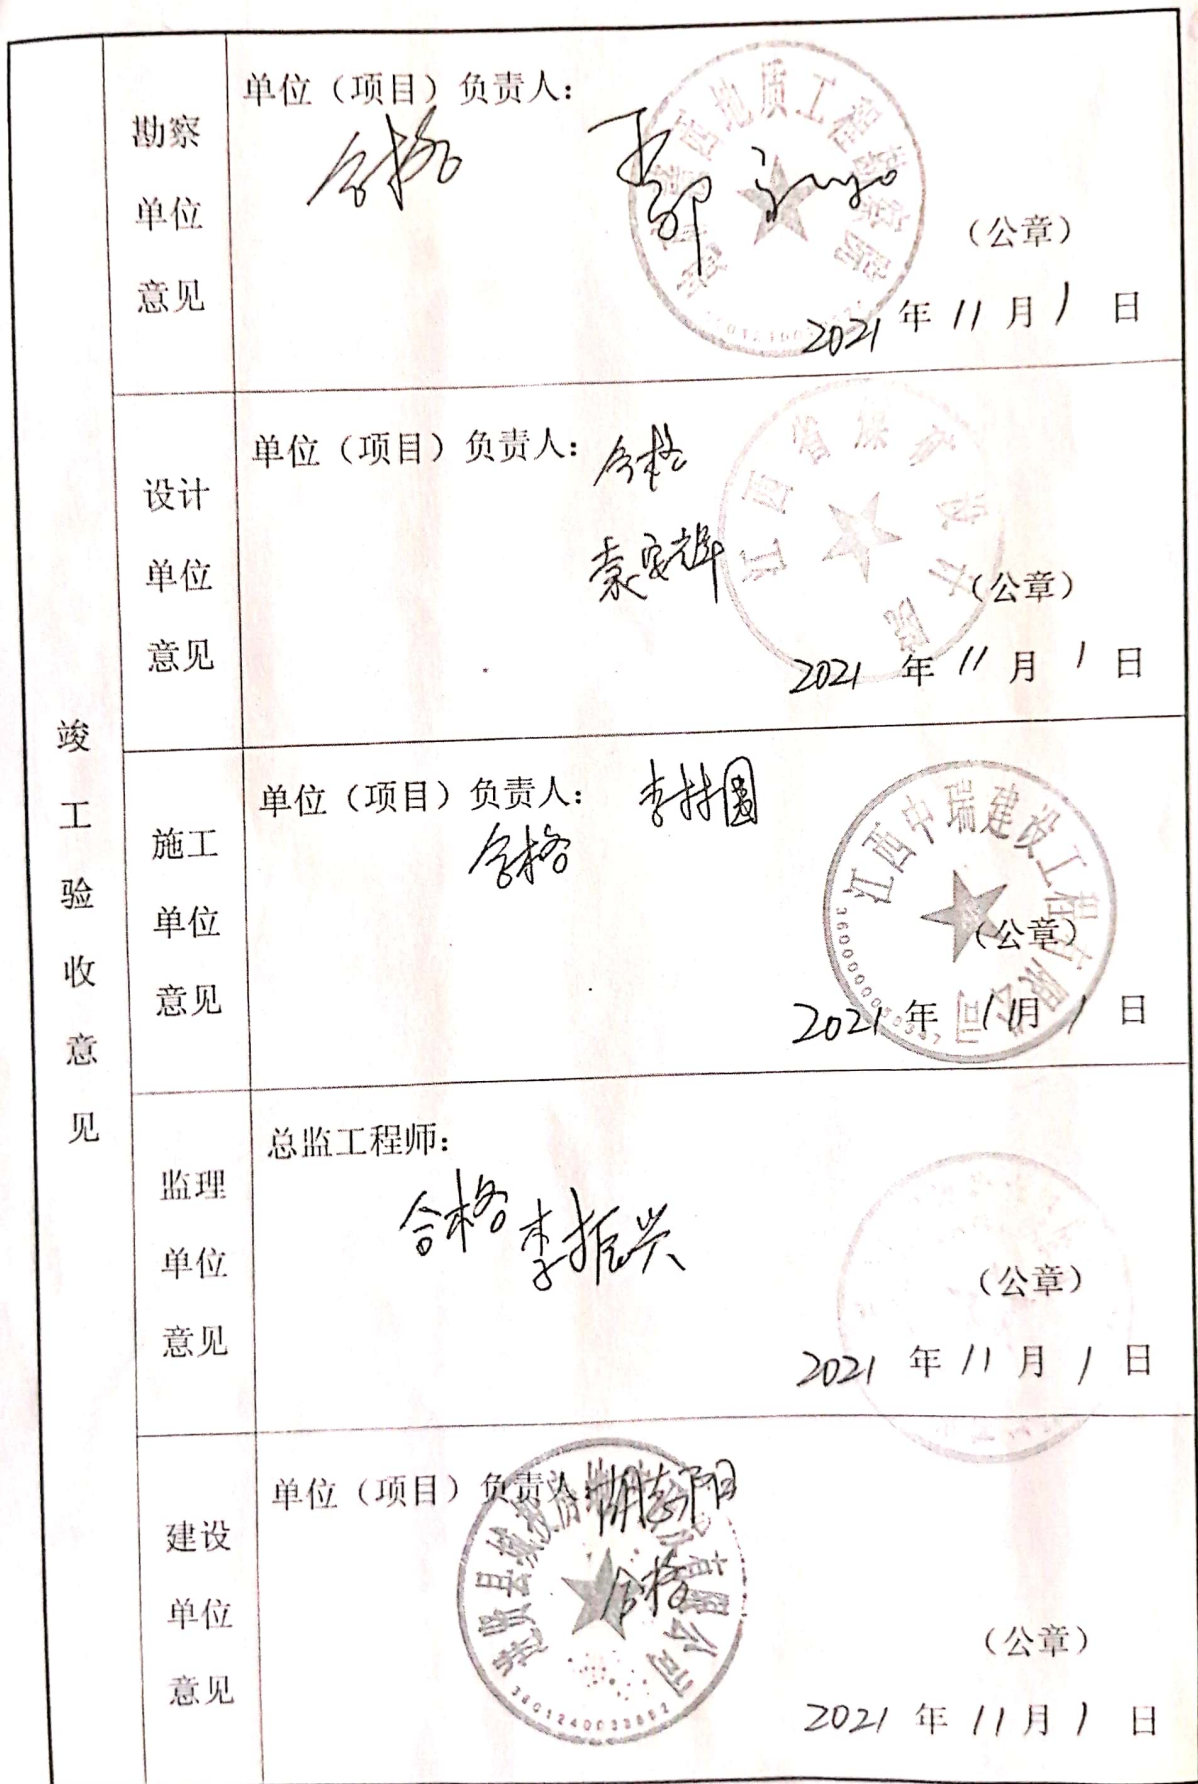 竣工验收意见
勘察单位意见
单位（项目）负责人：
合格
江西地质工程勘察院
（公章）
2021年11月1日
设计单位意见
单位（项目）负责人：
合格
袁安辉
江西省煤矿设计院
（公章）
2021年11月1日
施工单位意见
单位（项目）负责人：
李林圆
合格
江西中瑞建设工程有限公司
（公章）
2021年11月1日
监理单位意见
总监工程师：
合格 李振兴
（公章）
2021年11月1日
建设单位意见
单位（项目）负责人
胡志阳
合格
进贤县城投
有限公司
（公章）
2021年11月1日